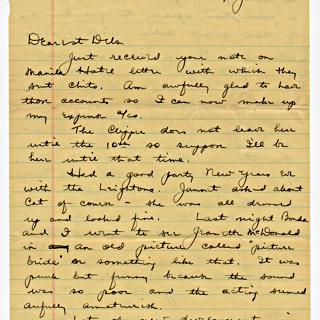 Dearest Debs
Just received your note on
Manila Hotel letter with which they
sent chits. Am awfully glad to have
those accounts so I can now make up
my Expense a/cs.
The Clipper does not leave here
until the 10th so suppose I'll be
here until that time.
Had a good party New Years Eve
with the Leightons. Janet asked about
Cat of course - she was all dressed
up and looked fine. Last night
and I went to see Jeanette McDonald
in an old picture called "picture
bride" or something like that. It was
punk but funny because the sound
was so poor and the acting seemed
awfully amateurish.